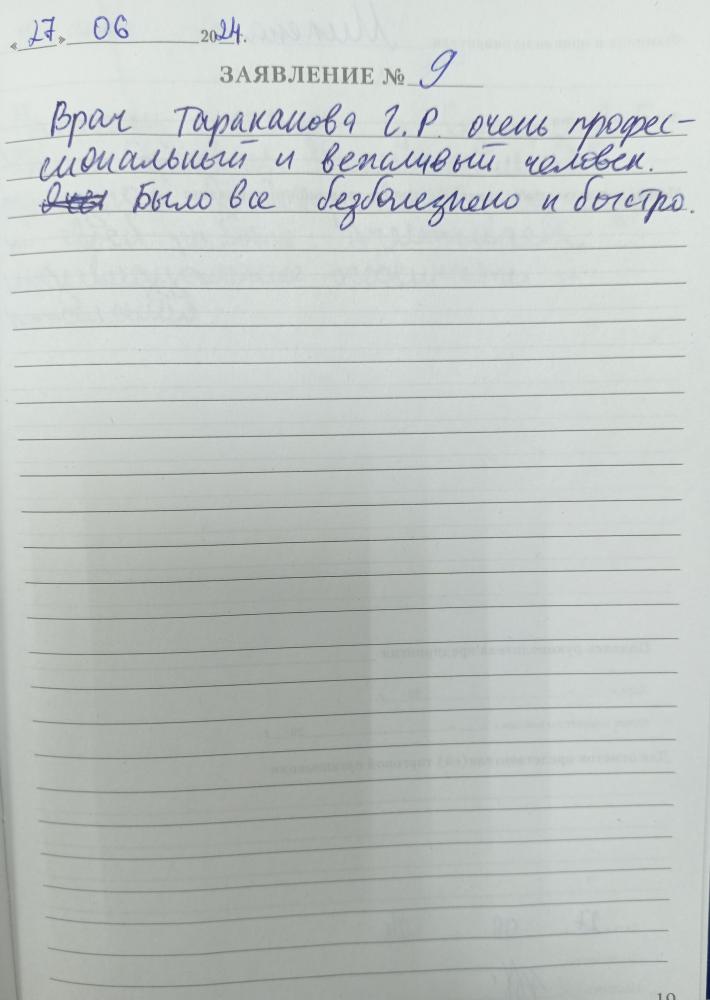 «27» 06 2024г.
ЗАЯВЛЕНИЕ № 9
Врач Тараканова Г.Р. очень профес-
сиональный и вежливый человек.
Было все безболезнено и быстро.
19